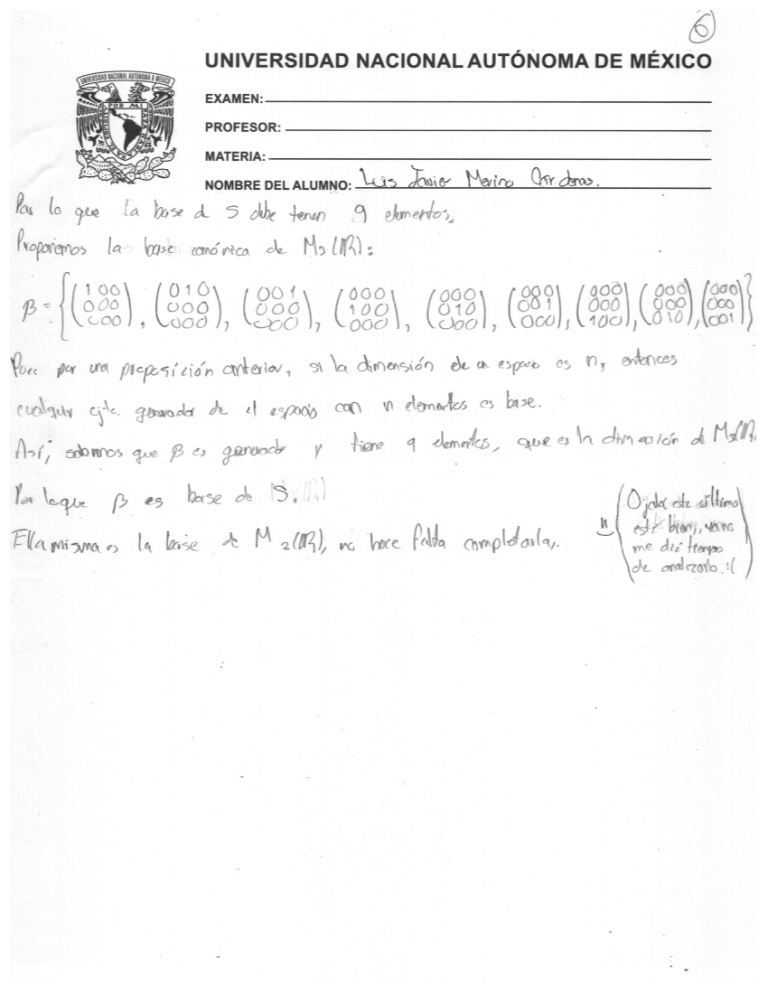 6
UNIVERSIDAD NACIONAL AUTÓNOMA DE MÉXICO
EXAMEN:
PROFESOR:
MATERIA:
NOMBRE DEL ALUMNO: Luis Javier Merino Cárdenas.
Por lo que la base d S debe tener 9 elementos.
Proponemos la base canónica de M3(IR):
β = {(1 0 0 / 0 0 0 / 0 0 0), (0 1 0 / 0 0 0 / 0 0 0), (0 0 1 / 0 0 0 / 0 0 0), (0 0 0 / 1 0 0 / 0 0 0), (0 0 0 / 0 1 0 / 0 0 0), (0 0 0 / 0 0 1 / 0 0 0), (0 0 0 / 0 0 0 / 1 0 0), (0 0 0 / 0 0 0 / 0 1 0), (0 0 0 / 0 0 0 / 0 0 1)}
Pues por una proposición anterior, si la dimensión de un espacio es n, entonces
cualquier cjto. generador de el espacio con n elementos es base.
Así, sabemos que β es generador y tiene 9 elementos, que es la dimensión d M3(IR).
Por lo que β es base de S.
Ella misma es la base de M2(IR), no hace falta completarla.
(Ojalá este último
esté bien, ya no
me dió tiempo
de analizarlo :( )